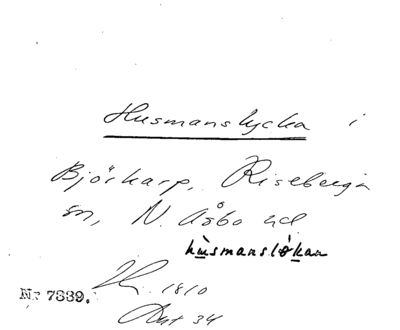 Husmanslycka i
Björkarp, Riseberga
sn, N. Åsbo hd
hùsmanslö̀kan
1810
Nr 7339.
Akt 34